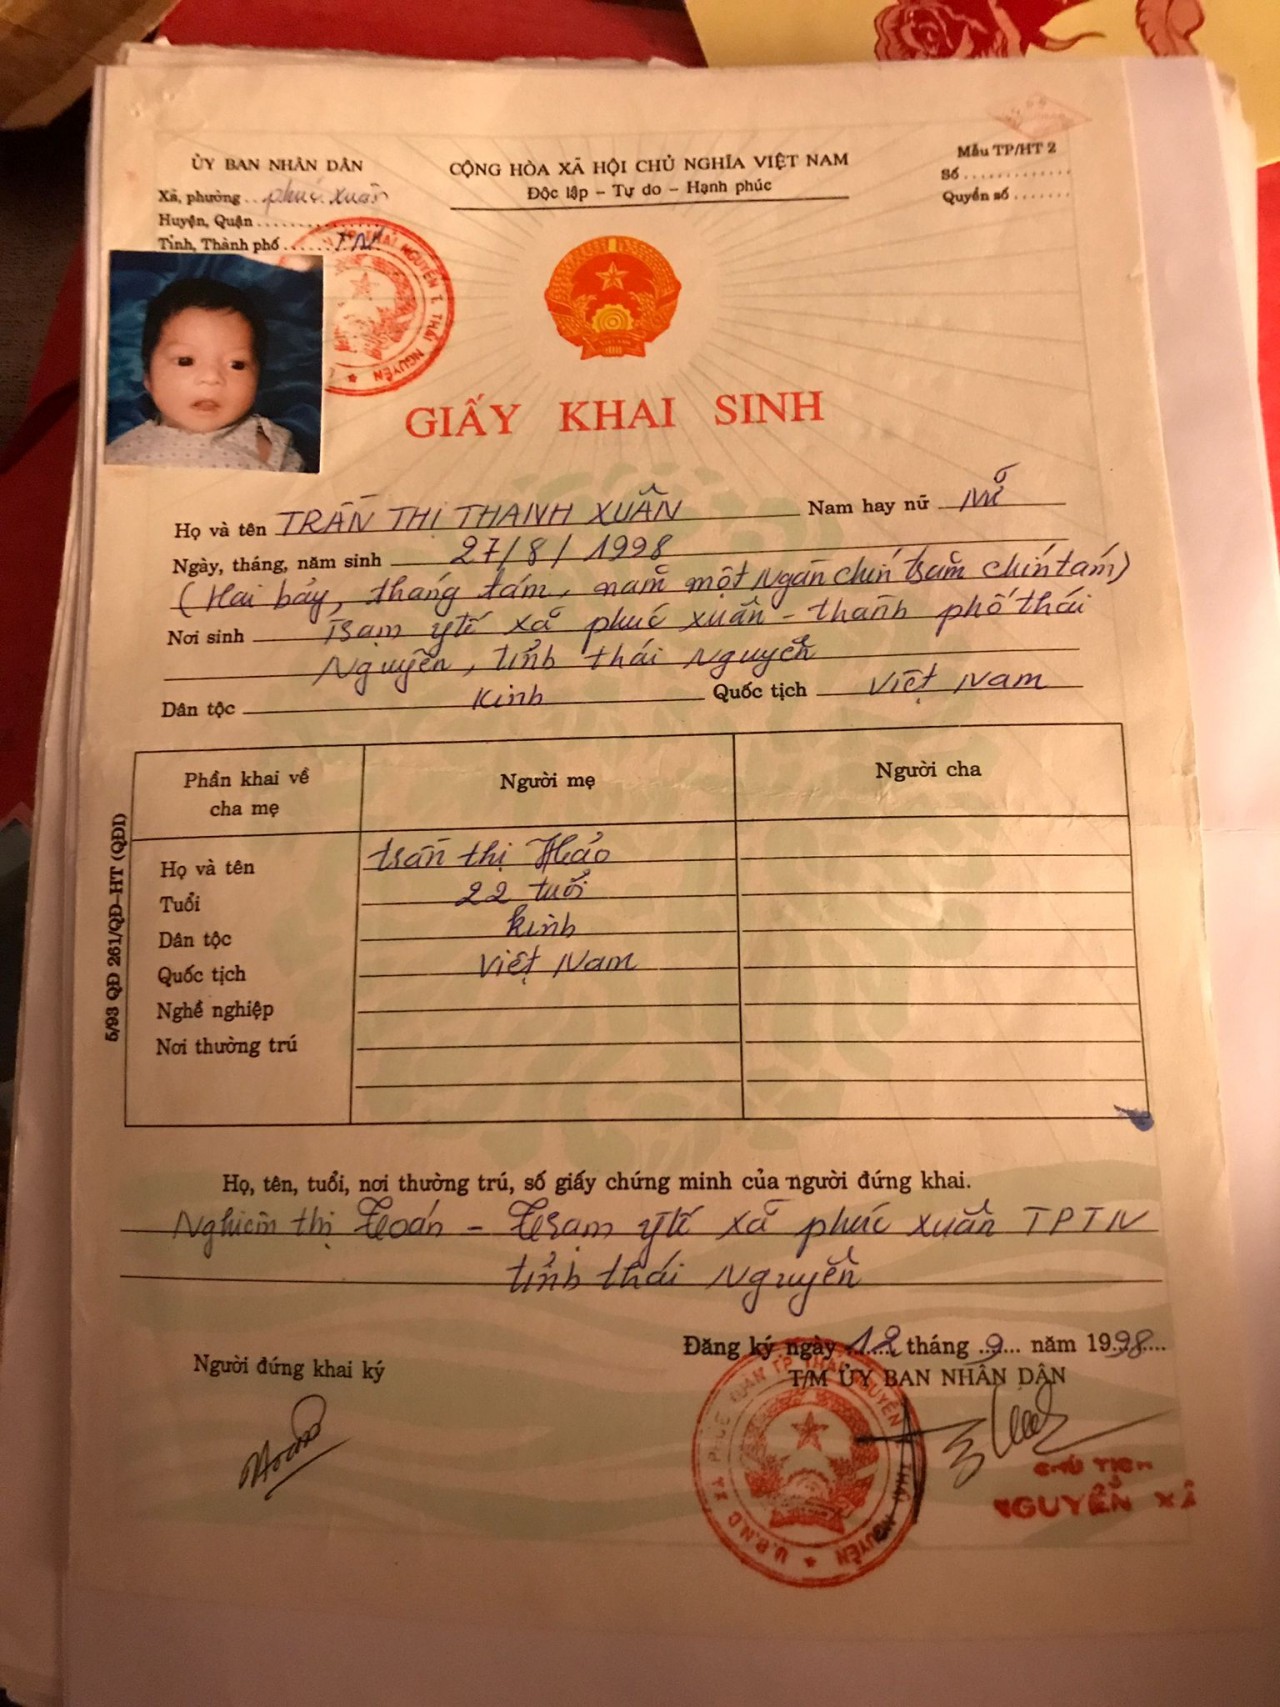 ỦY BAN NHÂN DÂN
Xã, phường phúc xuân
Huyện, Quận
Tỉnh, Thành phố TN
CỘNG HÒA XÃ HỘI CHỦ NGHĨA VIỆT NAM
Độc lập – Tự do – Hạnh phúc
Mẫu TP/HT 2
Số
Quyển số
GIẤY KHAI SINH
Họ và tên TRẦN THỊ THANH XUÂN Nam hay nữ Nữ
Ngày, tháng, năm sinh 27/8/1998
(Hai bảy, tháng tám, năm một ngàn chín trăm chín tám)
Nơi sinh Trạm y tế xã phúc xuân - thành phố thái
Nguyên, tỉnh thái Nguyên
Dân tộc Kinh Quốc tịch Việt Nam
Phần khai về cha mẹ Người mẹ Người cha
Họ và tên Trần thị Hảo
Tuổi 22 tuổi
Dân tộc Kinh
Quốc tịch Việt Nam
Nghề nghiệp
Nơi thường trú
5/93 QĐ 261/QĐ-HT (QĐI)
Họ, tên, tuổi, nơi thường trú, số giấy chứng minh của người đứng khai.
Nghiêm thị Toán - Trạm y tế xã phúc xuân TPTN
tỉnh thái Nguyên
Đăng ký ngày 12 tháng 9 năm 1998
Người đứng khai ký
T/M ỦY BAN NHÂN DÂN
CHỦ TỊCH
NGUYỄN XÁ
U.B.N.D XÃ PHÚC XUÂN TP THÁI NGUYÊN T. THÁI NGUYÊN